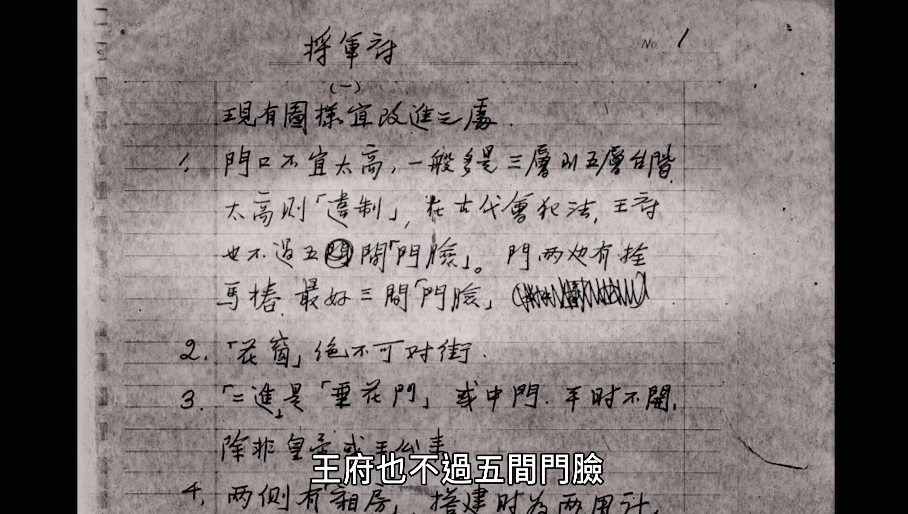 将軍府
No. 1
(一)
現有圖樣宜改進之處.
1. 門口不宜太高,一般多是三層到五層台階
太高則「違制」,在古代會犯法,王府
也不過五間「門臉」。門兩边有拴
馬樁.最好三間「門臉」
2.「花窗」絕不可对街.
3.「二進」是「垂花門」或中門.平时不開,
除非皇帝或王公事
4. 兩側有「廂房」,搭建时为兩用計,
王府也不過五間門臉